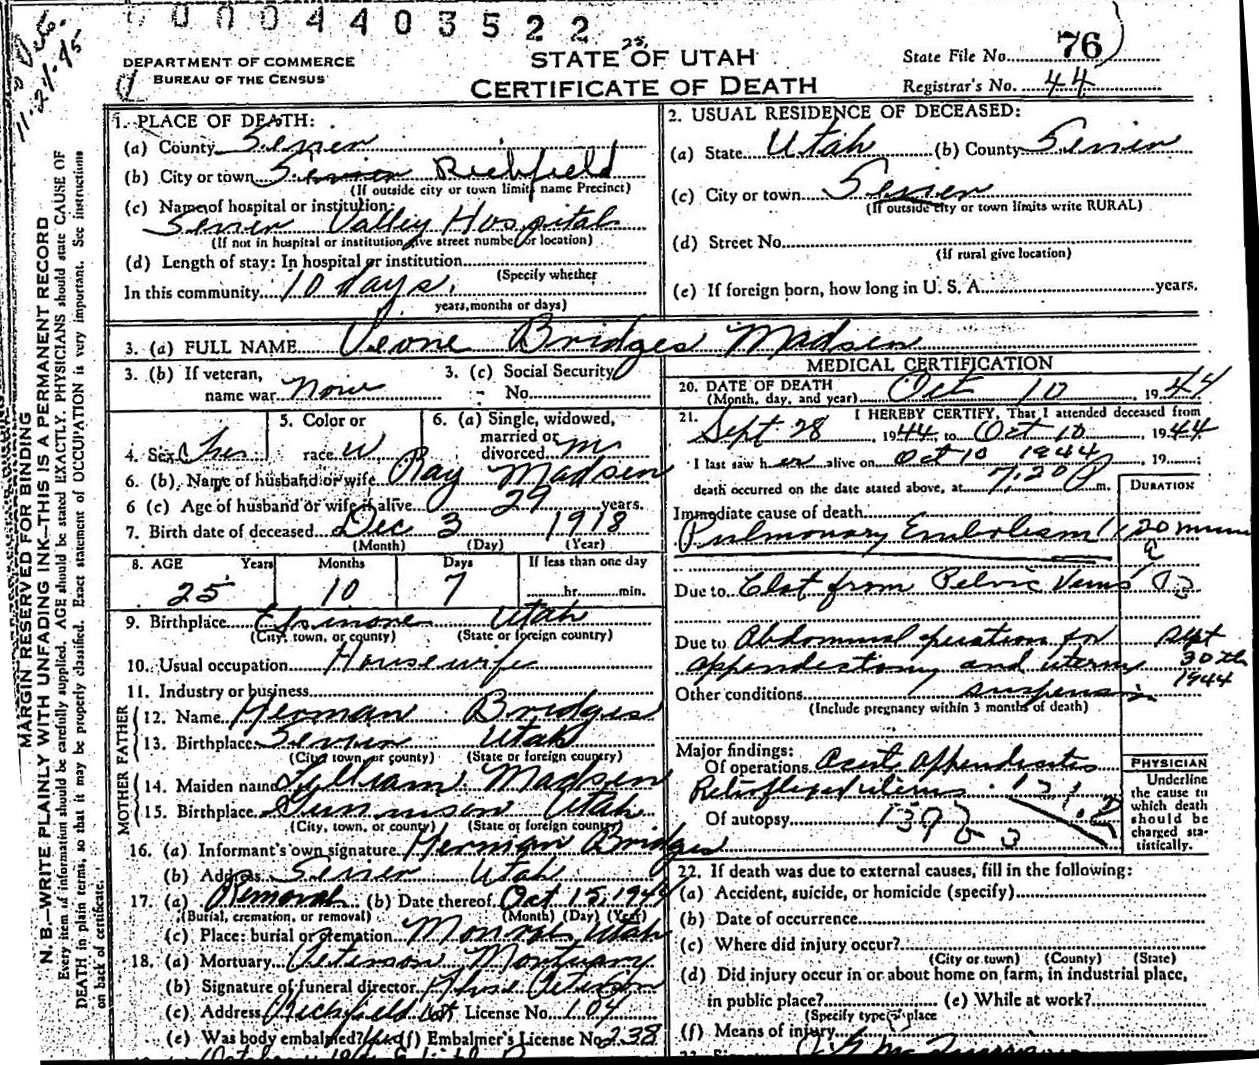 0 0 0 4 4 0 3 5 2 2
11-21-45
DEPARTMENT OF COMMERCE
BUREAU OF THE CENSUS
25
STATE OF UTAH
CERTIFICATE OF DEATH
State File No. 76
Registrar's No. 44
MARGIN RESERVED FOR BINDING
N. B.—WRITE PLAINLY WITH UNFADING INK—THIS IS A PERMANENT RECORD
Every item of information should be carefully supplied. AGE should be stated EXACTLY. PHYSICIANS should state CAUSE OF
DEATH in plain terms, so that it may be properly classified. Exact statement of OCCUPATION is very important. See instructions
on back of certificate.
1. PLACE OF DEATH:
(a) County Sevier
(b) City or town Sevier Richfield
(If outside city or town limits name Precinct)
(c) Name of hospital or institution:
Sevier Valley Hospital
(If not in hospital or institution give street number or location)
(d) Length of stay: In hospital or institution
(Specify whether
In this community 10 days.
years, months or days)
2. USUAL RESIDENCE OF DECEASED:
(a) State Utah (b) County Sevier
(c) City or town Sevier
(If outside city or town limits write RURAL)
(d) Street No.
(If rural give location)
(e) If foreign born, how long in U. S. A. years.
3. (a) FULL NAME Veone Bridges Madsen
3. (b) If veteran,
name war
3. (c) Social Security
No.
4. Sex
5. Color or
race W
6. (a) Single, widowed,
married or
divorced m
6. (b) Name of husband or wife Ray Madsen
6 (c) Age of husband or wife if alive 29 years.
7. Birth date of deceased Dec 3 1918
(Month) (Day) (Year)
8. AGE Years Months Days If less than one day
25 10 7 hr. min.
9. Birthplace Elsinore Utah
(City, town, or county) (State or foreign country)
10. Usual occupation Housewife
11. Industry or business
FATHER
12. Name Herman Bridges
13. Birthplace Sevier Utah
(City, town, or county) (State or foreign country)
MOTHER
14. Maiden name Lillian Madsen
15. Birthplace Gunnison Utah
(City, town, or county) (State or foreign country)
16. (a) Informant's own signature Herman Bridges
(b) Address Sevier Utah
17. (a) Removal (b) Date thereof Oct 15, 1944
(Burial, cremation, or removal) (Month) (Day) (Year)
(c) Place: burial or cremation Monroe Utah
18. (a) Mortuary Peterson Mortuary
(b) Signature of funeral director Peterson
(c) Address Richfield Ut License No. 104
(e) Was body embalmed? Yes (f) Embalmer's License No. 238
MEDICAL CERTIFICATION
20. DATE OF DEATH
(Month, day, and year) Oct 10, 1944
21. I HEREBY CERTIFY, That I attended deceased from
Sept 28, 1944, to Oct 10, 1944
I last saw her alive on Oct 10 1944, 19
death occurred on the date stated above, at 7:20 P m.
DURATION
Immediate cause of death
Pulmonary Embolism 20 min
Due to Clot from Pelvic Veins
Due to Abdominal operation for Sept
appendectomy and uterine 30th
1944
suspension
Other conditions
(Include pregnancy within 3 months of death)
Major findings:
Of operations Acute Appendicitis
Retroflexed uterus 121.2
Of autopsy 139 b 3
PHYSICIAN
Underline
the cause to
which death
should be
charged sta-
tistically.
22. If death was due to external causes, fill in the following:
(a) Accident, suicide, or homicide (specify)
(b) Date of occurrence
(c) Where did injury occur?
(City or town) (County) (State)
(d) Did injury occur in or about home on farm, in industrial place,
in public place? (e) While at work?
(Specify type of place
(f) Means of injury